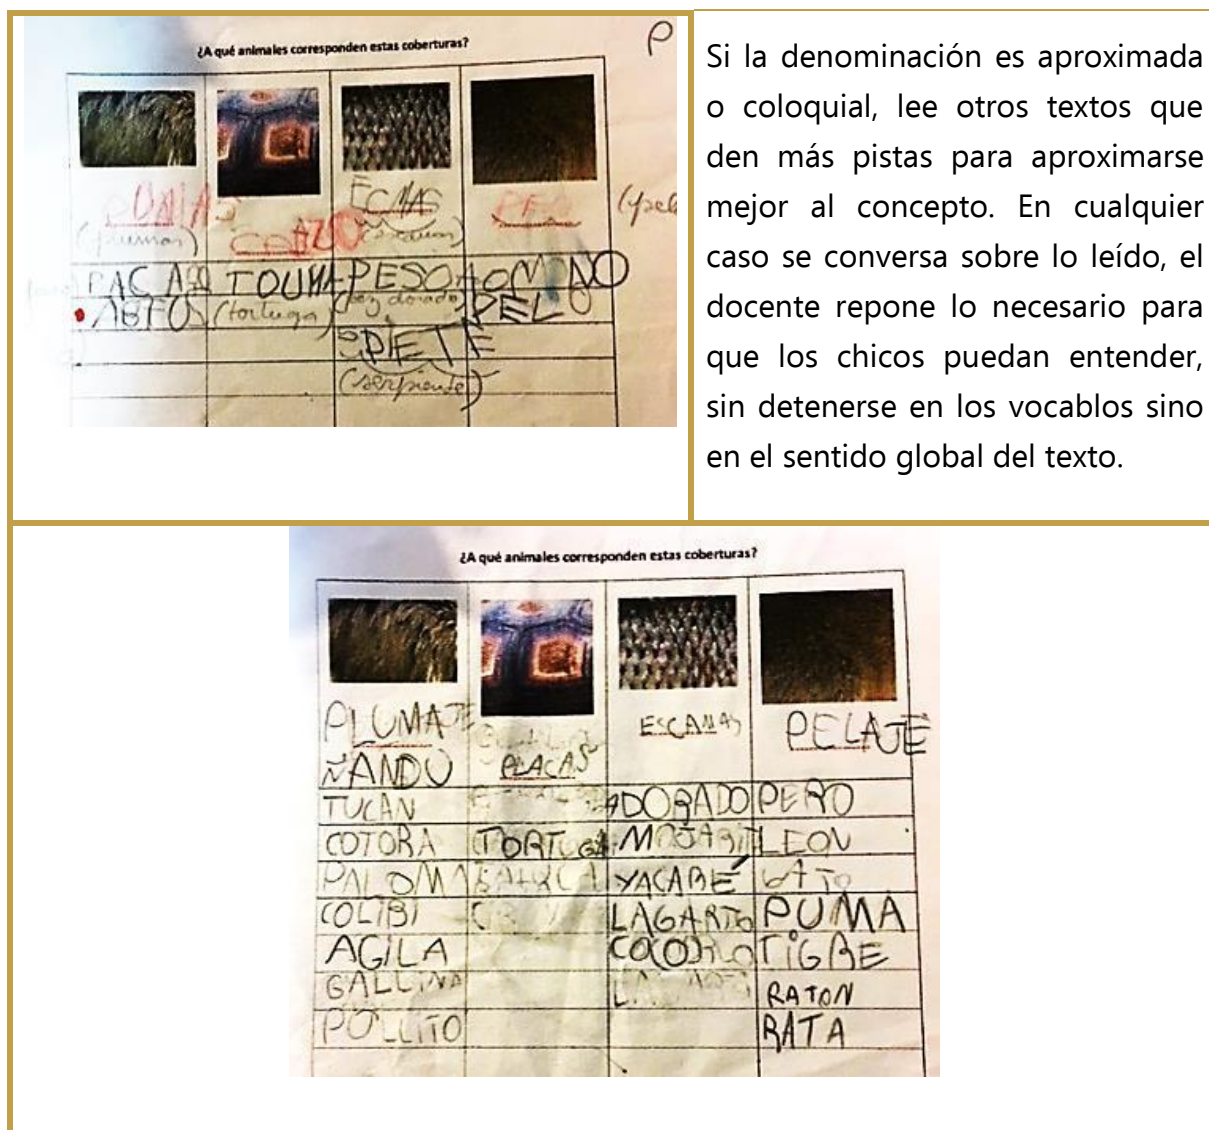 ¿A qué animales corresponden estas coberturas?
P
ECMAS
PACA TOUMA PESO
(tortuga)
PELO
PIETE
(serpiente)
Si la denominación es aproximada
o coloquial, lee otros textos que
den más pistas para aproximarse
mejor al concepto. En cualquier
caso se conversa sobre lo leído, el
docente repone lo necesario para
que los chicos puedan entender,
sin detenerse en los vocablos sino
en el sentido global del texto.
¿A qué animales corresponden estas coberturas?
PLUMAJE ESCAMAS PELAJE
ÑANDÚ PLACAS
TUCAN DORADO PERO
COTORA TORTUGA LEON
PALOMA YACARÉ GATO
COLIBI LAGARTO PUMA
AGILA TIGRE
GALLINA RATON
POLLITO RATA